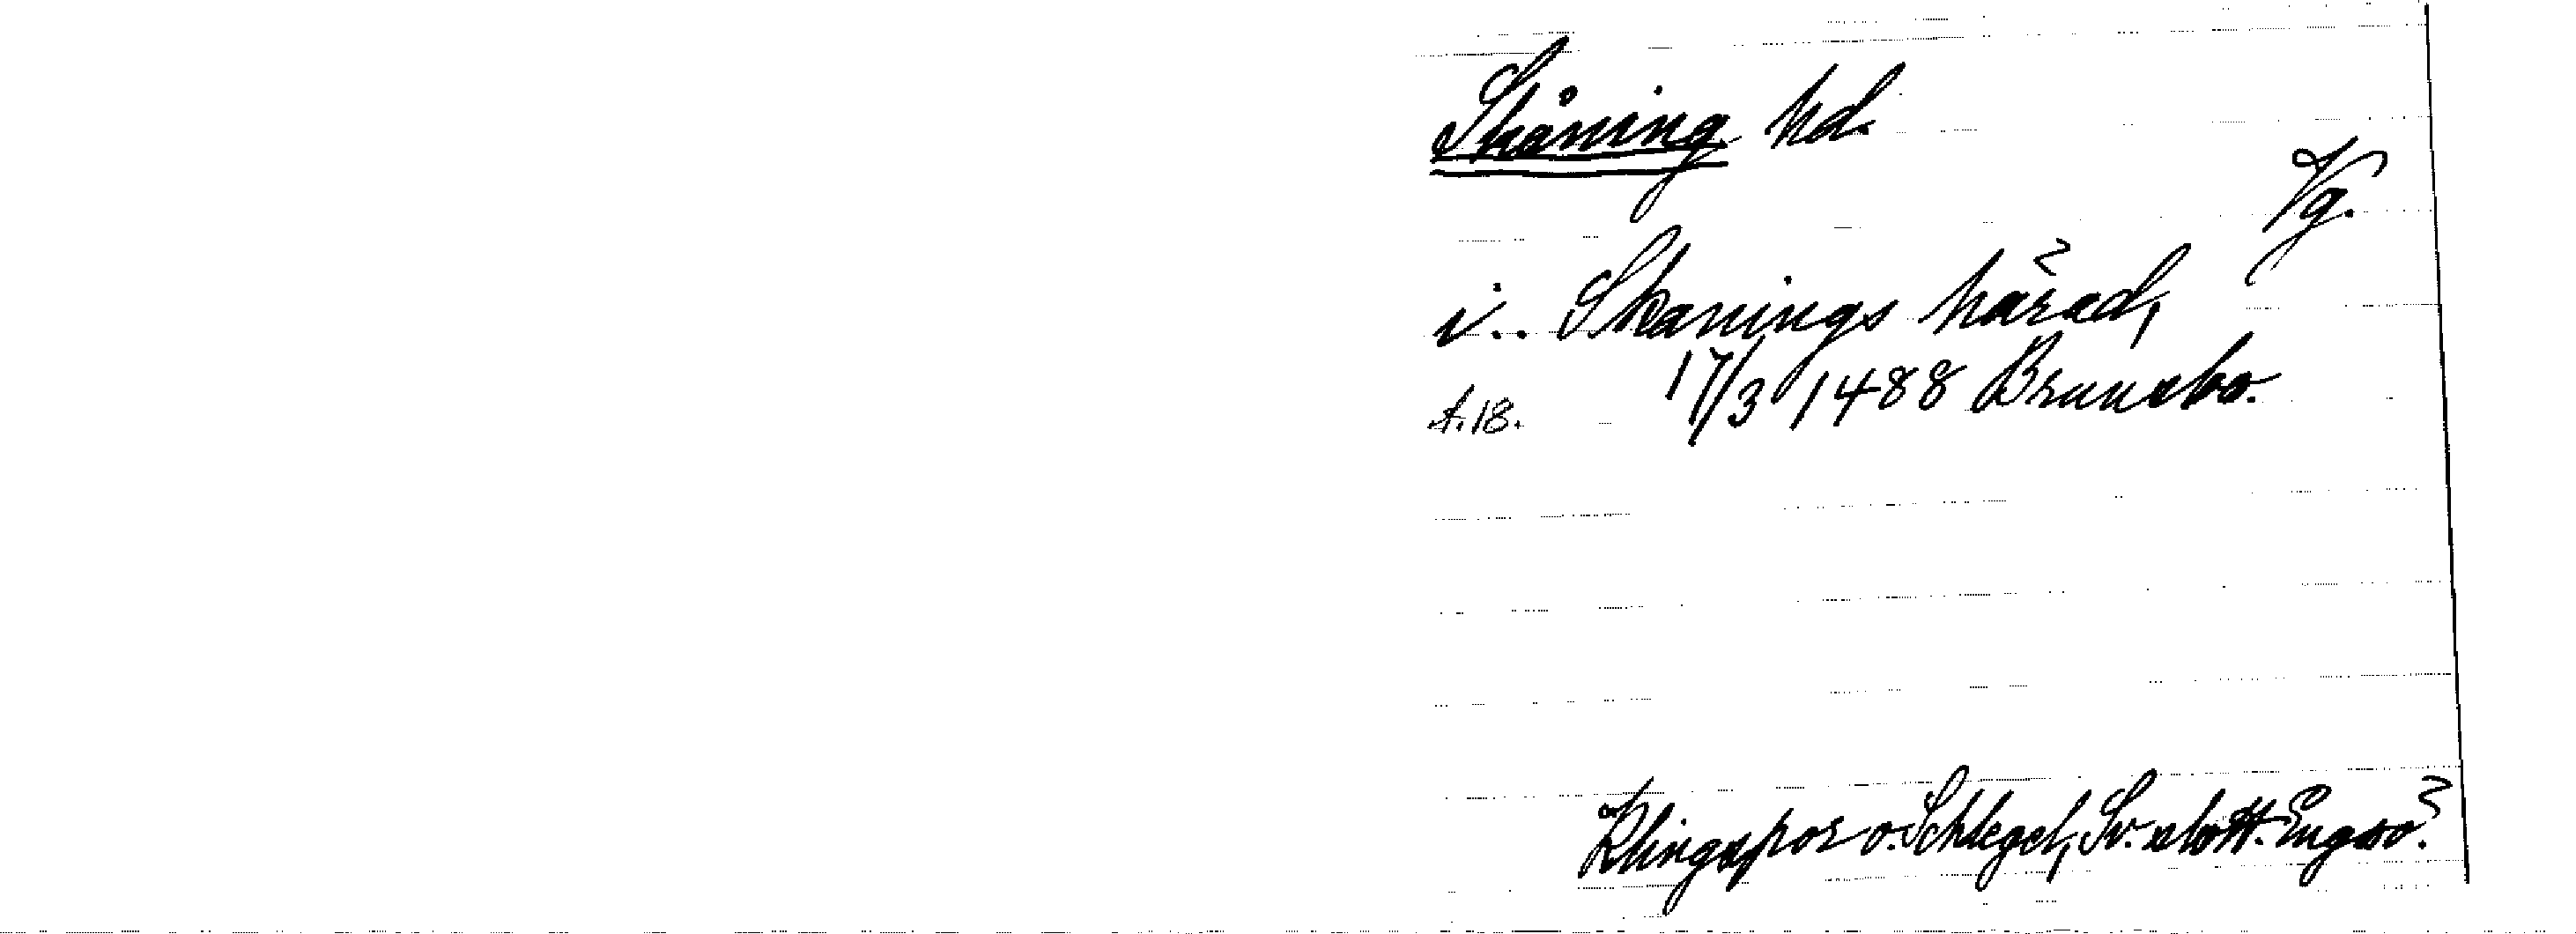 Skåning hd.
Vg.
i.. Skanings härad,
17/3 1488 Brunsbo.
A.18.
Klingspor o. Schlegel, Sv. slott. Engsö.